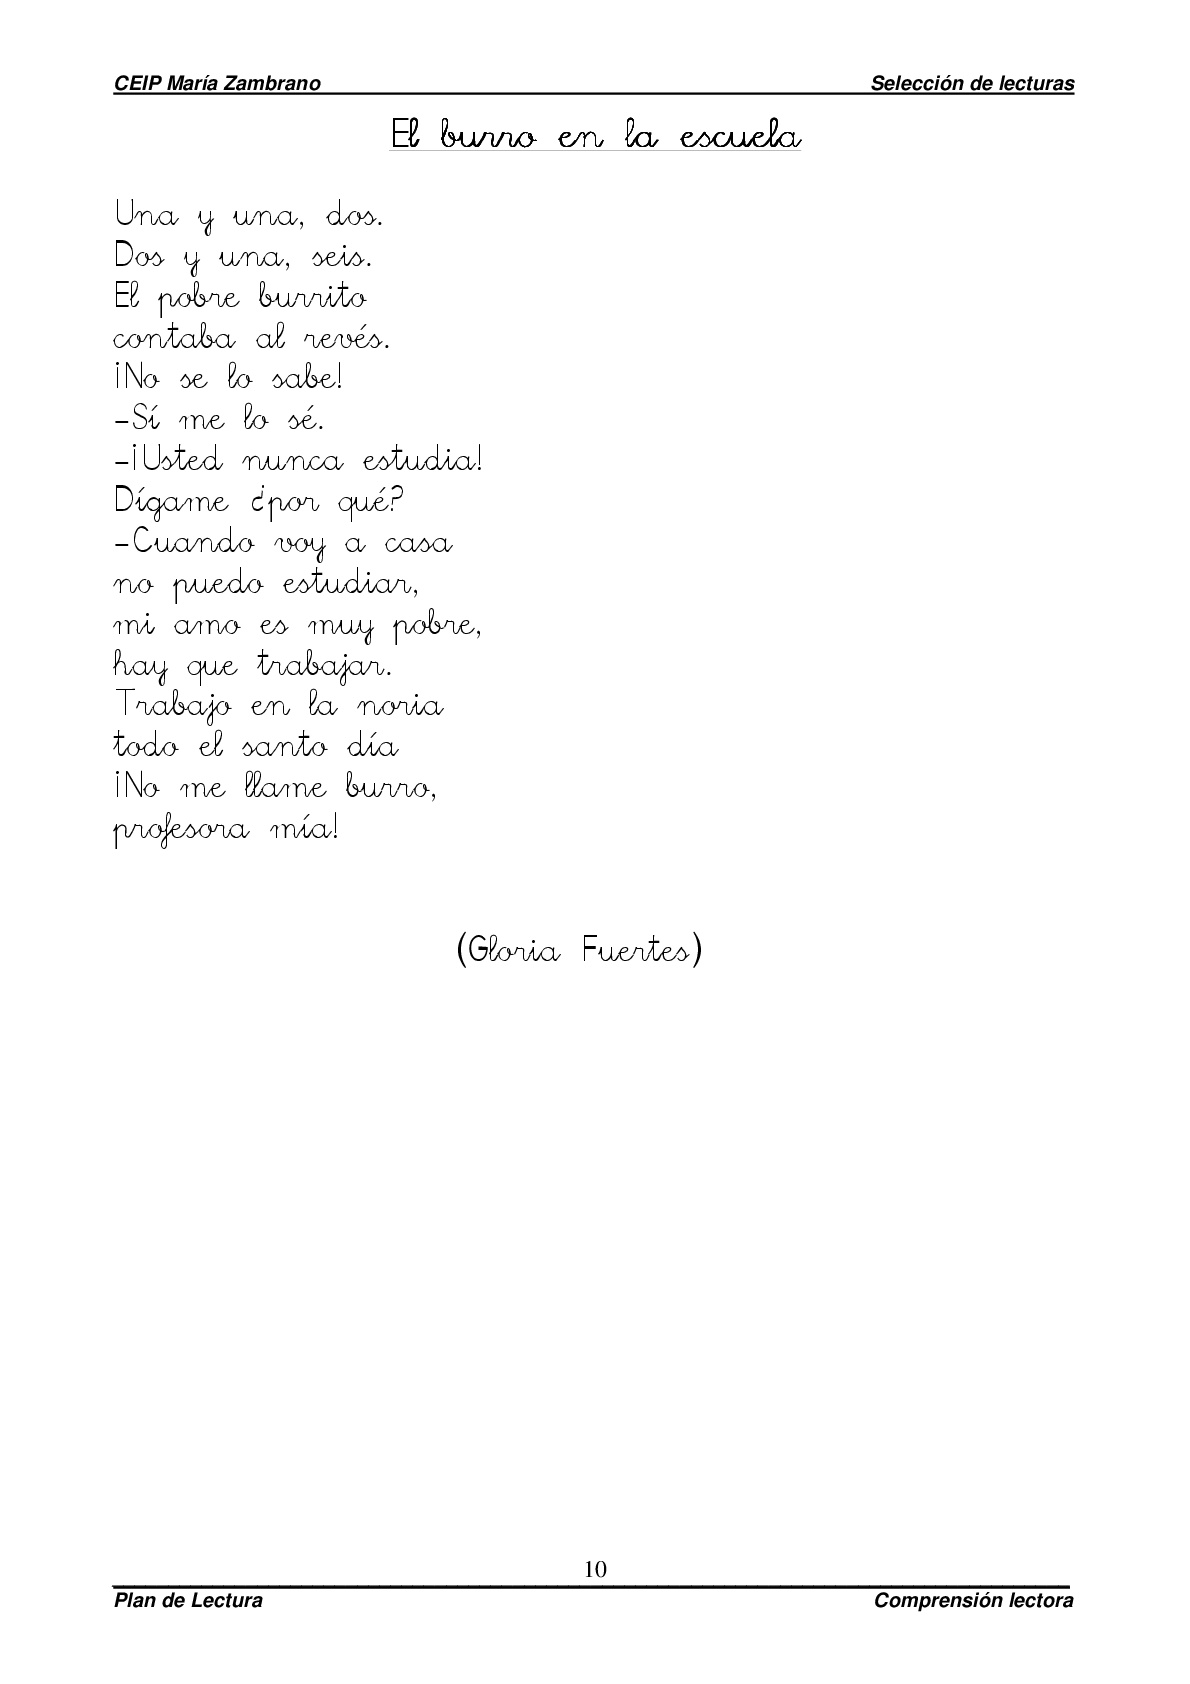 CEIP María Zambrano Selección de lecturas
El burro en la escuela
Una y una, dos.
Dos y una, seis.
El pobre burrito
contaba al revés.
¡No se lo sabe!
-Sí me lo sé.
-¡Usted nunca estudia!
Dígame ¿por qué?
-Cuando voy a casa
no puedo estudiar,
mi amo es muy pobre,
hay que trabajar.
Trabajo en la noria
todo el santo día
¡No me llame burro,
profesora mía!
(Gloria Fuertes)
10
Plan de Lectura Comprensión lectora